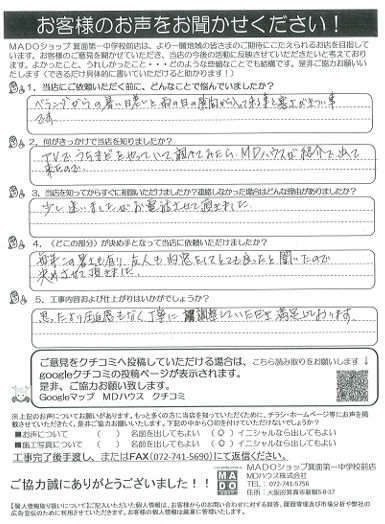 お客様のお声をお聞かせください!
MADOショップ 箕面第一中学校前店は、より一層地域の皆さまのご期待にこたえられるお店を目指して
います。お客様のご意見を聞かせていただき、当店の今後の活動に反映させていただきたいと考えており
ます。よかったこと、うれしかったこと・・・どのような些細なことでも結構です。是非ご協力お願いい
たします(できるだけ具体的に書いていただけると助かります!)
1. 当店にご依頼いただく前に、どんなことで悩んでいましたか?
ベランダからの暑い日差しと
です。
2. 何がきっかけで当店を知りましたか?
TVでうちまどをやっていて調べてみたら、MDハウスが紹介で出て
来たので。
3. 当店を知ってからすぐに相談いただけましたか?連絡しなかった場合はどんな理由がありましたか?
少し迷いましたがお電話させて頂きました。
4. 〈どこの部分〉が決め手となって当店にご依頼いただけましたか?
友人も内窓をしてとても良かったと聞いたので
決めさせて頂きました。
5. 工事内容および仕上がりはいかがでしょうか?
思ったより圧迫感もなく丁寧に調整していただき満足しております。
ご意見をクチコミへ投稿していただける場合は、こちら読み取りをお願いします↓
googleクチコミの投稿ページが表示されます。
是非、ご協力お願い致します。
Googleマップ MDハウス クチコミ
※上記のお声についてお願いがあります。もっと多くの方に当店を知っていただくために、チラシ・ホームページ等にお声を掲
載させていただきたく、是非ご協力お願いいたします。下記の中から〇印を付けていただけないでしょうか?
■お声について ( ) 名前を出してもよい (〇) イニシャルなら出してもよい
■施工写真について ( ) 名前を出してもよい (〇) イニシャルなら出してもよい
工事完了後手渡し、またはFAX(072-741-5690)にて返信ください。
ご協力誠にありがとうございます。
MADO
MADOショップ箕面第一中学校前店
MDハウス株式会社
TEL:072-741-5756
住所:大阪府箕面市新稲5-8-37
【個人情報取り扱いについて】ご記入いただいた個人情報は、お客様からのお問い合わせに対する回答、履歴管理及び市場分析や弊社の
広告宣伝のために利用させていただきます。お客様の個人情報は厳重に管理いたします。